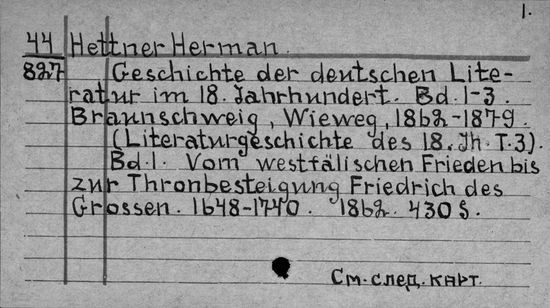 1.
44 Hettner Herman.
827 Geschichte der deutschen Lite-
ratur im 18. Jahrhundert. Bd. 1-3.
Braunschweig, Wieweg, 1862-1879.
(Literaturgeschichte des 18. Jh. T. 3).
Bd. 1. Vom westfälischen Frieden bis
zur Thronbesteigung Friedrich des
Grossen. 1648-1740. 1862. 430 S.
См. след. карт.